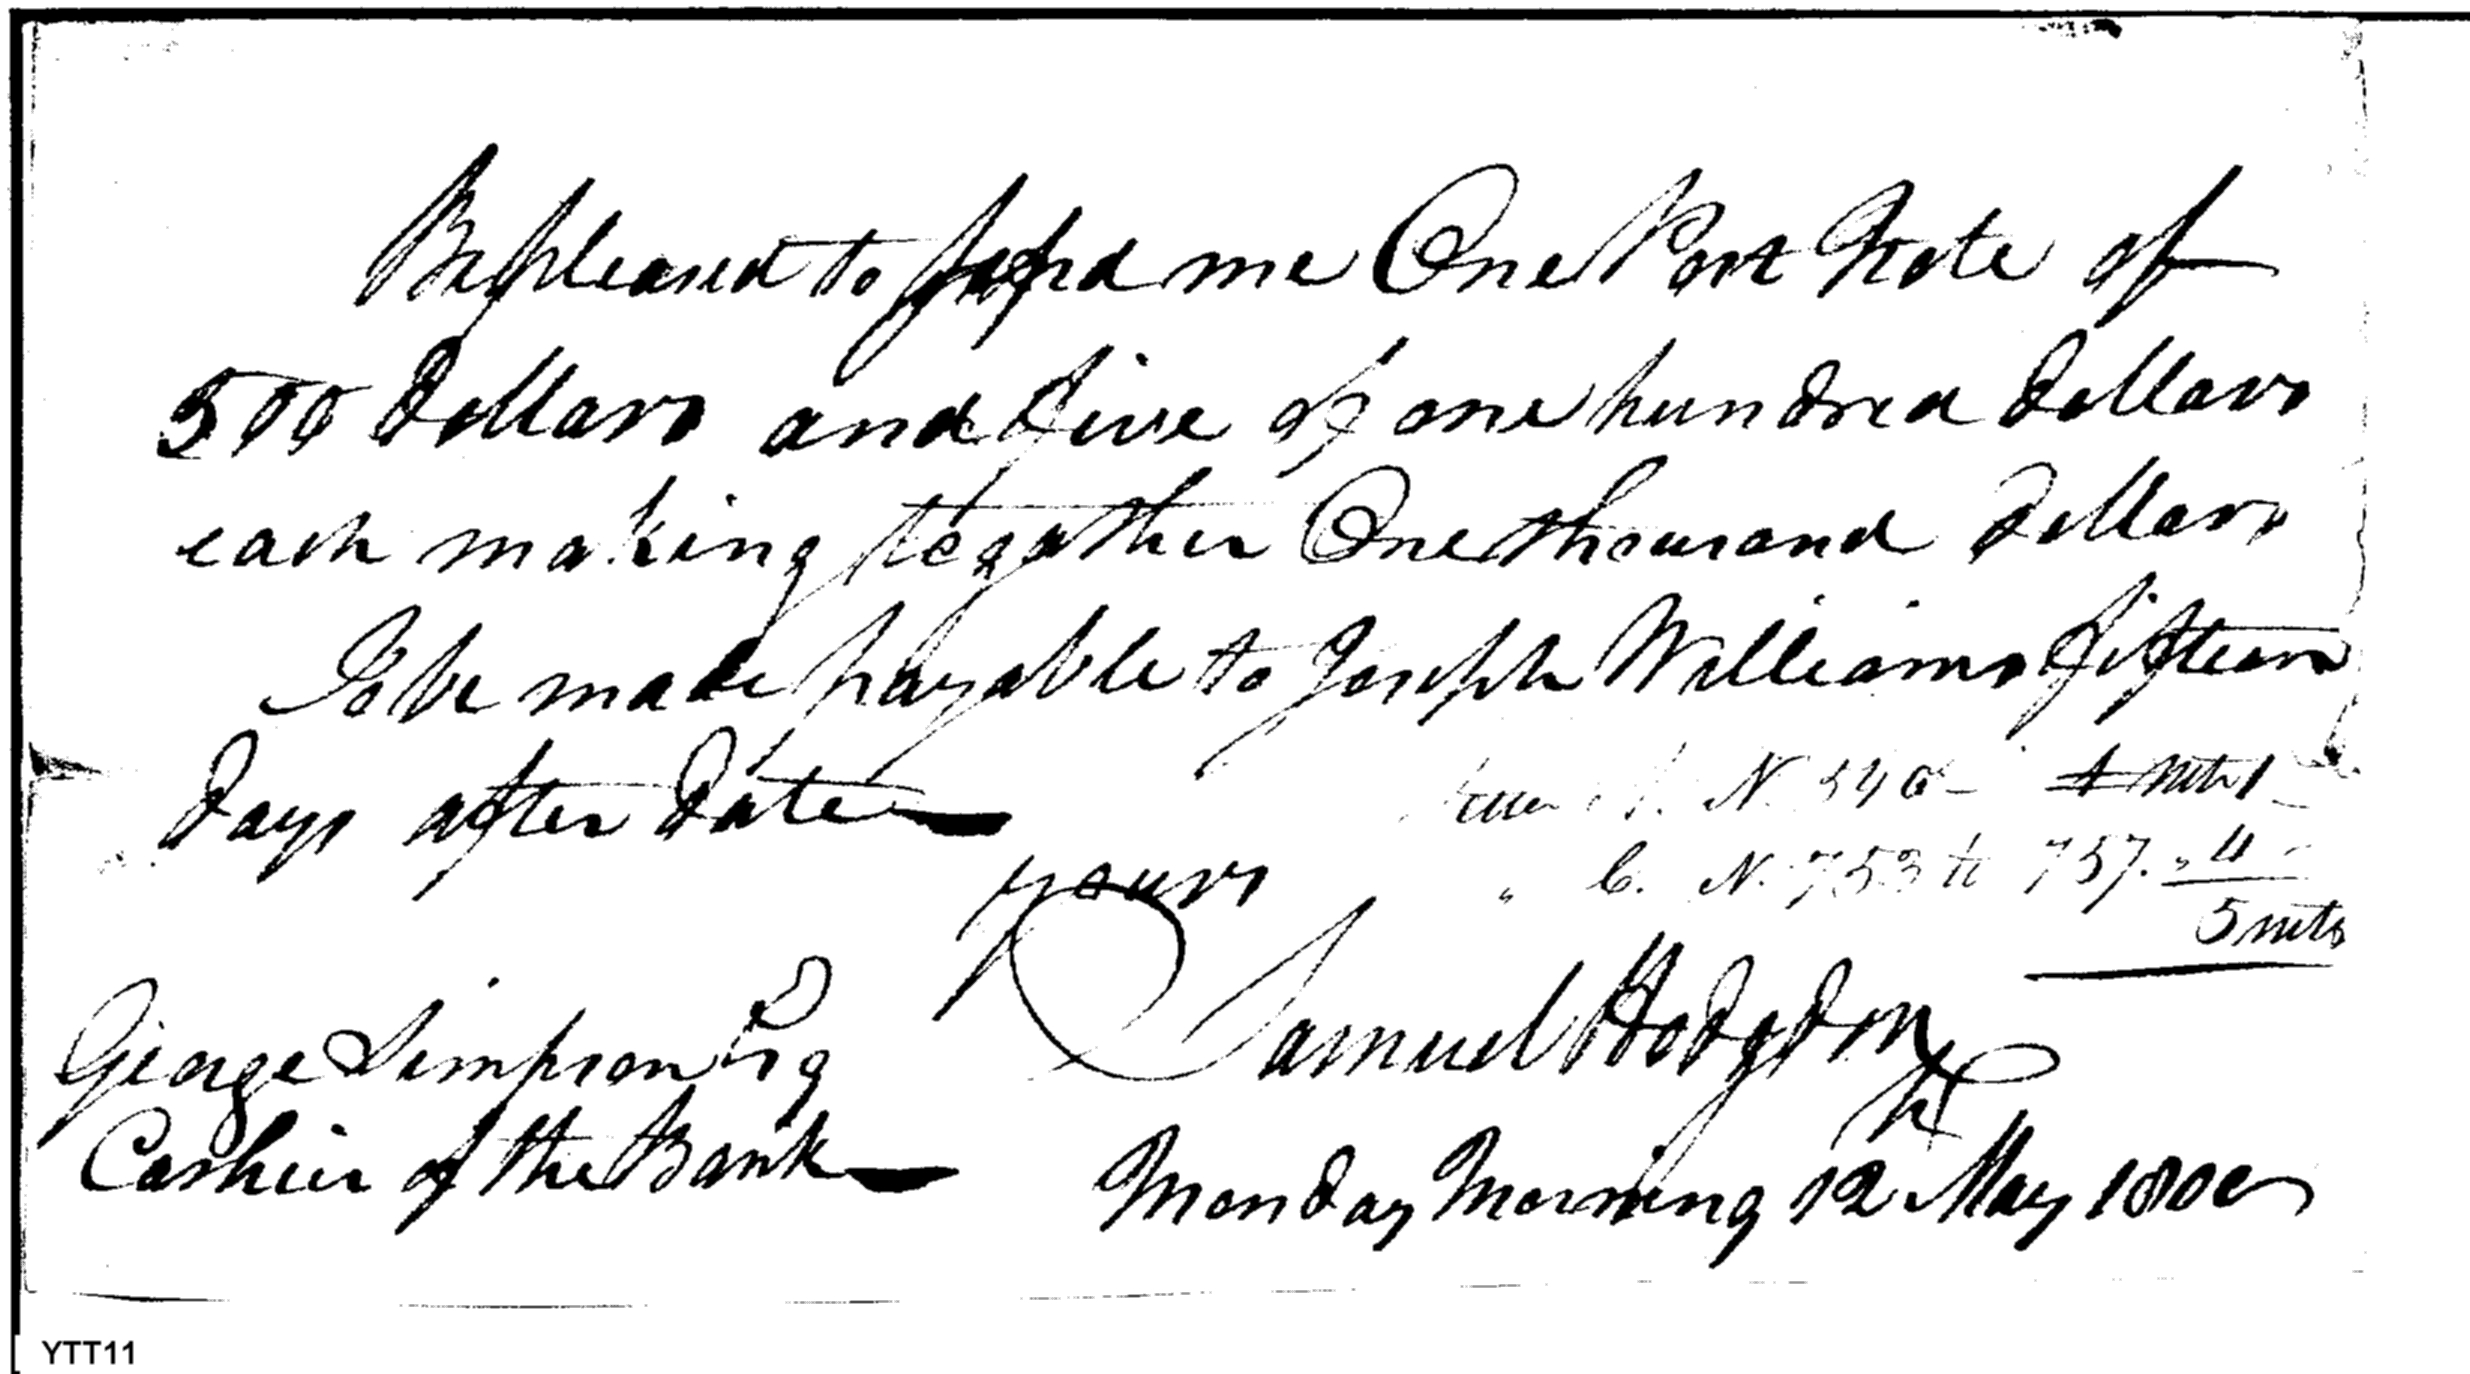 Be pleased to send me One Post Note of
500 Dollars and five of one hundred dollars
each making together One thousand Dollars
To be made payable to Joseph Williams fifteen
days after date
N. 
C. N. 753 to 757. 4
5 nts
yours
Samuel Hodgdon
George Simpson Esq
Cashier of the Bank
Monday Morning 12 May 1800
YTT11